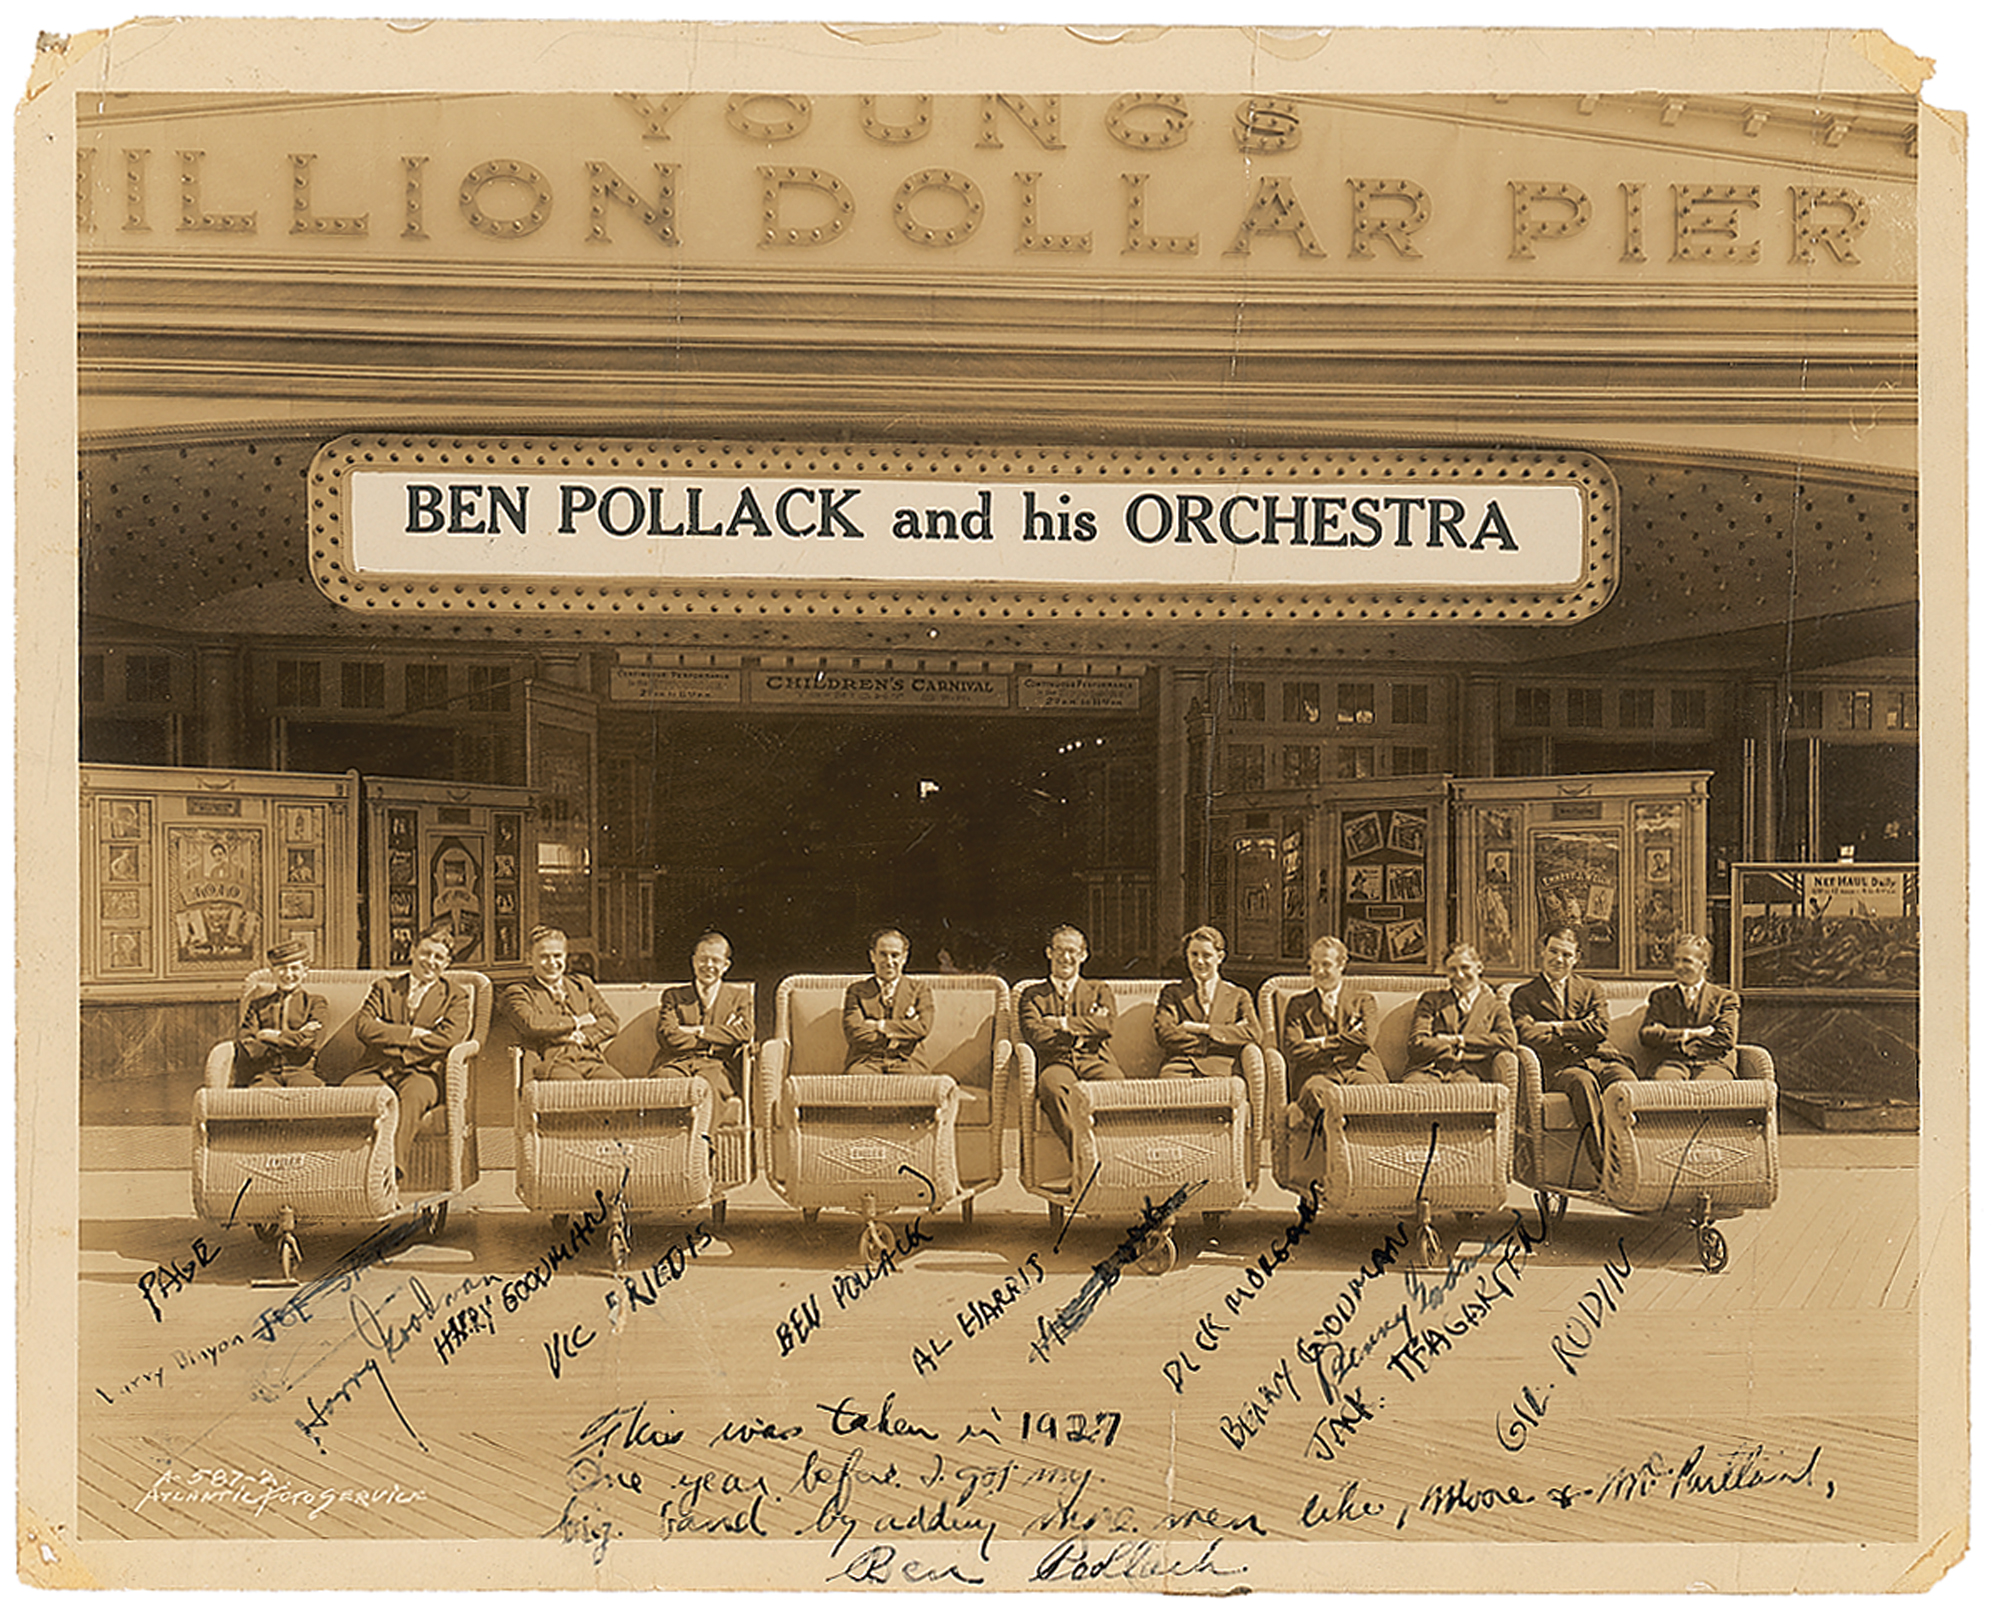 YOUNGS
ILLION DOLLAR PIER
BEN POLLACK and his ORCHESTRA
CONTINUOUS PERFORMANCE
CHILDREN'S CARNIVAL
CONTINUOUS PERFORMANCE
NET HAUL Daily
PAGE
Larry Binyon
JOE
Harry Goodman
HARRY GOODMAN
VIC
BEN POLLACK
AL HARRIS
DICK MORGAN
BENNY GOODMAN
Benny Goodman
JACK. TEAGARTEN
GIL. RODIN
This was taken in 1927
One year before I got my.
big. band by adding more men like, Moore & McPartland,
Ben Pollack
A-587-2
ATLANTIC FOTO SERVICE